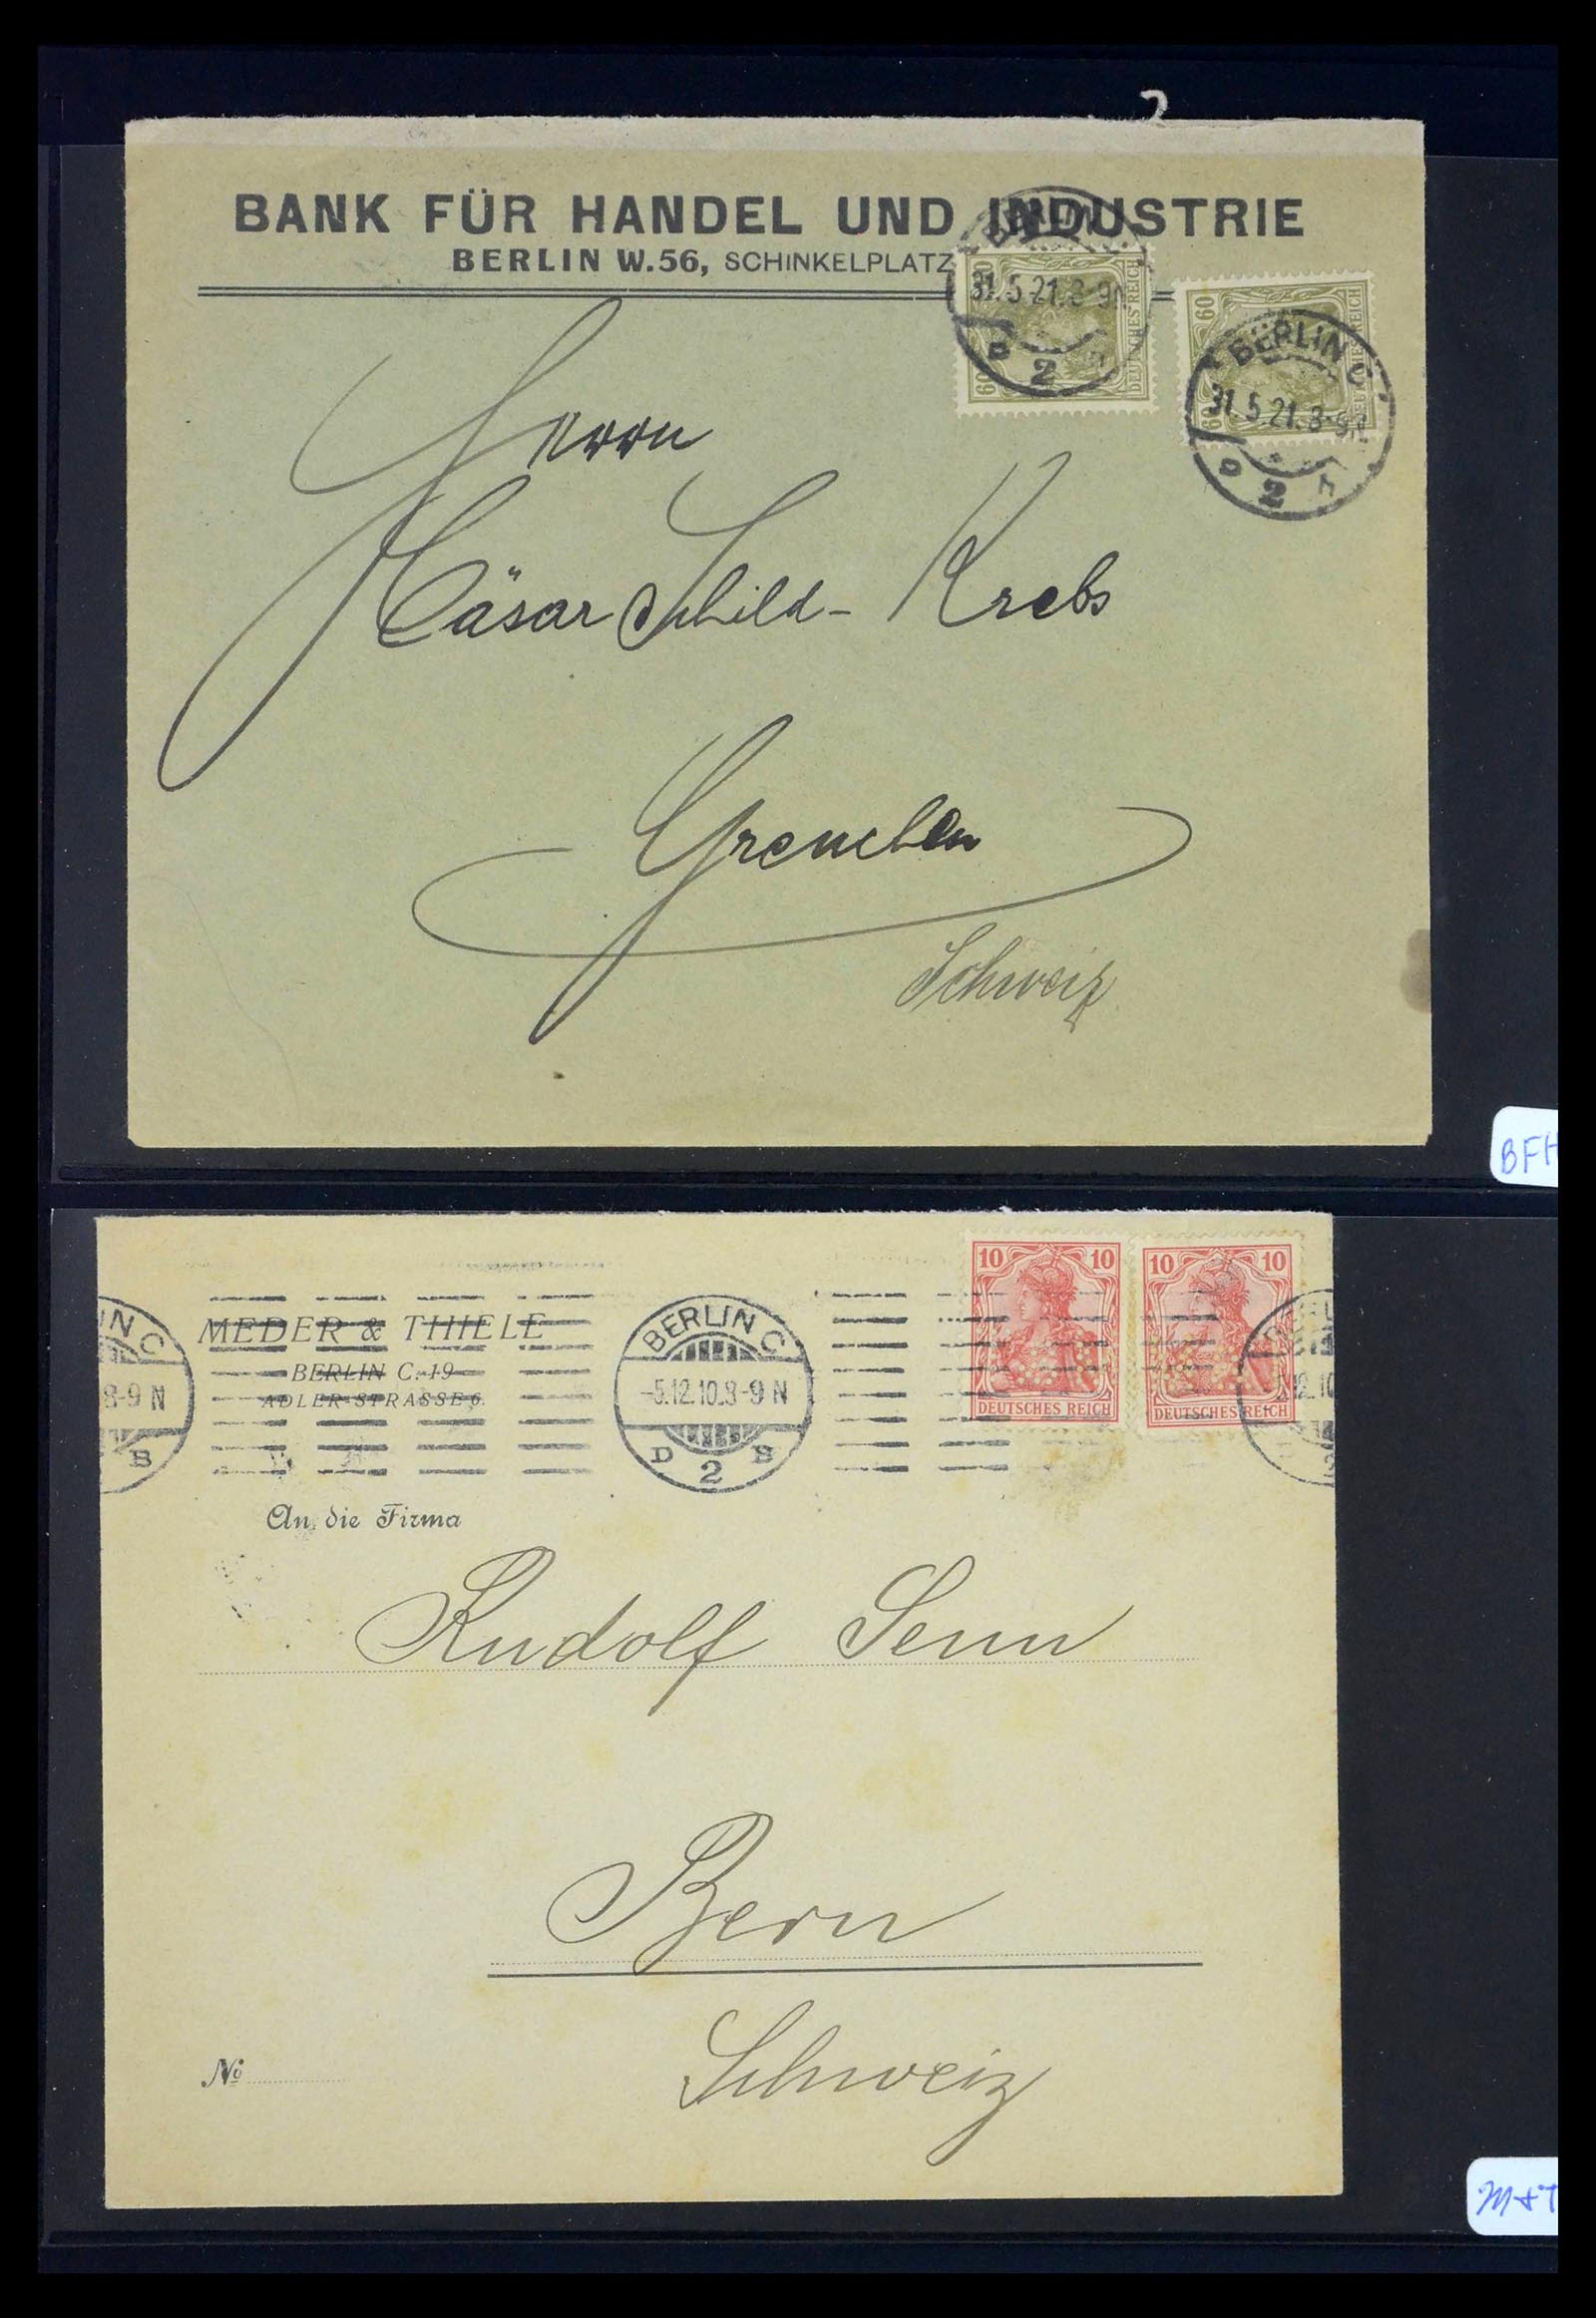 BANK FÜR HANDEL UND INDUSTRIE
BERLIN W.56, SCHINKELPLATZ
60
60
DEUTSCHES REICH
31.5.21.8-9N
2
60
60
BERLIN C
31.5.21.8-9N
2
Herrn
Cäsar Schild-Krebs
Grenchen
Schweiz
BFH
MEDER & THIELE
BERLIN C. 19
ADLER-STRASSE 6.
8-9 N
BERLIN C
-5.12.10.8-9 N
2
10 10
DEUTSCHES REICH
10 10
DEUTSCHES REICH
An die Firma
Rudolf Senn
Bern
Schweiz
No
M+T